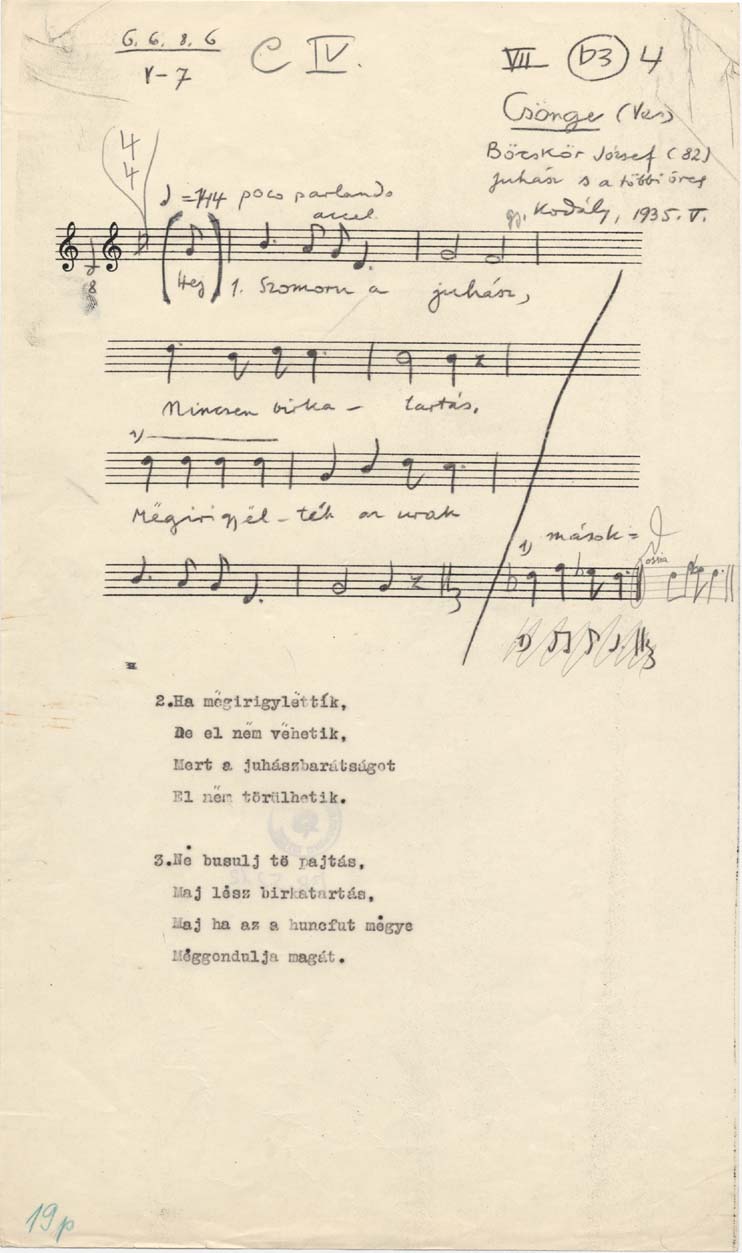 6. 6. 8. 6
V-7
C IV.
VII b3 4
Csönge (Vas)
Böcskör József (82)
juhász s a többi öreg
gy. Kodály, 1935. V.
4
4
=144 poco parlando
accel.
8
(Hej) 1. Szomoru a juhász,
Nincsen birka - tartás,
1)
Mëgirigyël - ték az urak
1) mások =
ossia
1)
2.Ha mëgirigylëttík,
De el nëm vëhetik,
Mert a juhászbarátságot
El nëm törülhetik.
3.Në busulj të pajtás,
Maj lësz birkatartás,
Maj ha az a huncfut mëgye
Mëggondulja magát.
19p